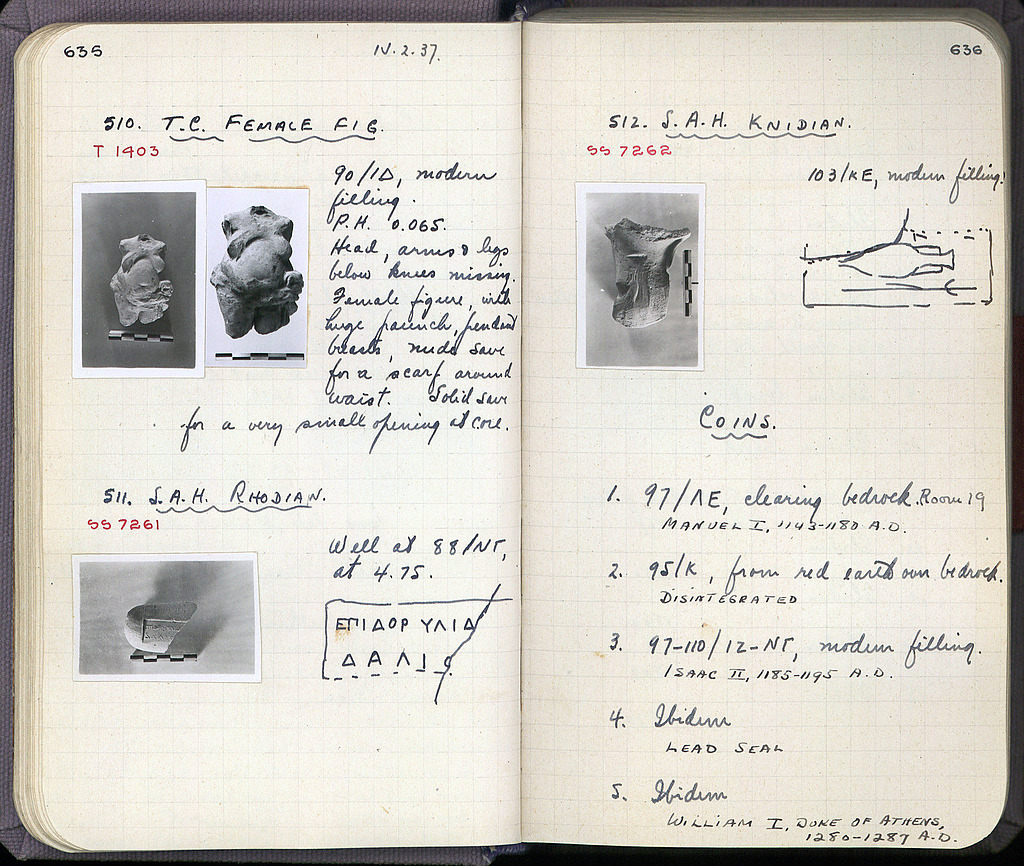 635
IV.2.37.
510. T.C. FEMALE FIG.
T 1403
90/ΙΔ, modern
filling.
P.H. 0.065.
Head, arms & legs
below knees missing.
Female figure, with
huge paunch, pendant
breasts, nude save
for a scarf around
waist. Solid save
for a very small opening at core.
511. S.A.H. RHODIAN.
SS 7261
Well at 88/ΝΓ,
at 4.75.
ΕΠΙΔΟΡΥΛΙΔ
ΔΑΛΙΟ
636
512. S.A.H. KNIDIAN.
SS 7262
103/ΚΕ, modern filling.
COINS.
1. 97/ΛΕ, clearing bedrock. Room 19
MANUEL I, 1143-1180 A.D.
2. 95/Κ, from red earth over bedrock.
DISINTEGRATED
3. 97-110/12-ΝΓ, modern filling.
ISAAC II, 1185-1195 A.D.
4. Ibidem
LEAD SEAL
5. Ibidem
WILLIAM I, DUKE OF ATHENS,
1280-1287 A.D.